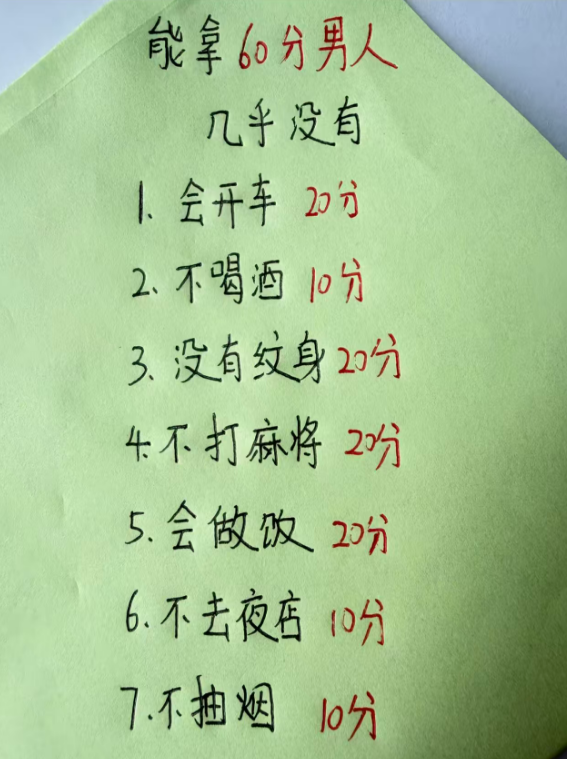 能拿60分男人
几乎没有
1. 会开车 20分
2. 不喝酒 10分
3. 没有纹身 20分
4. 不打麻将 20分
5. 会做饭 20分
6. 不去夜店 10分
7. 不抽烟 10分